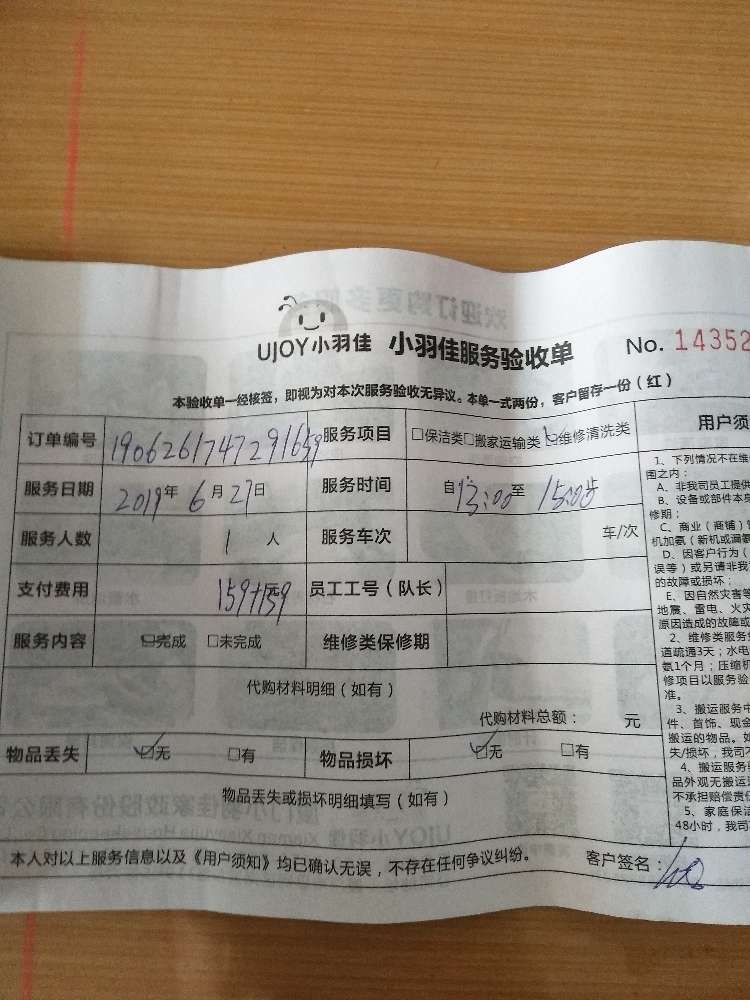 UJOY小羽佳 小羽佳服务验收单 No. 14352
本验收单一经核签，即视为对本次服务验收无异议。本单一式两份，客户留存一份（红）
订单编号 1906261747291659 服务项目 □保洁类□搬家运输类☑维修清洗类
服务日期 2019年 6月27日 服务时间 自13:00至15:00
服务人数 1 人 服务车次 车/次
支付费用 159+159 员工工号（队长）
服务内容 ☑完成 □未完成 维修类保修期
代购材料明细（如有）
代购材料总额： 元
物品丢失 ☑无 □有 物品损坏 ☑无 □有
物品丢失或损坏明细填写（如有）
本人对以上服务信息以及《用户须知》均已确认无误，不存在任何争议纠纷。 客户签名：
用户须
1、下列情况不在维
围之内：
A、非我司员工提供
B、设备或部件本身
修期；
C、商业（商铺）
机加氨（新机或漏氨
D、因客户行为（
误等）或另请非我
的故障或损坏；
E、因自然灾害等
地震、雷电、火灾
原因造成的故障或
2、维修类服务
道疏通3天；水电
氨1个月；压缩机
修项目以服务验
准。
3、搬运服务中
件、首饰、现金
搬运的物品。如
失/损坏，我司不
4、搬运服务
品外观无搬运
不承担赔偿责任
5、家庭保洁
48小时，我司